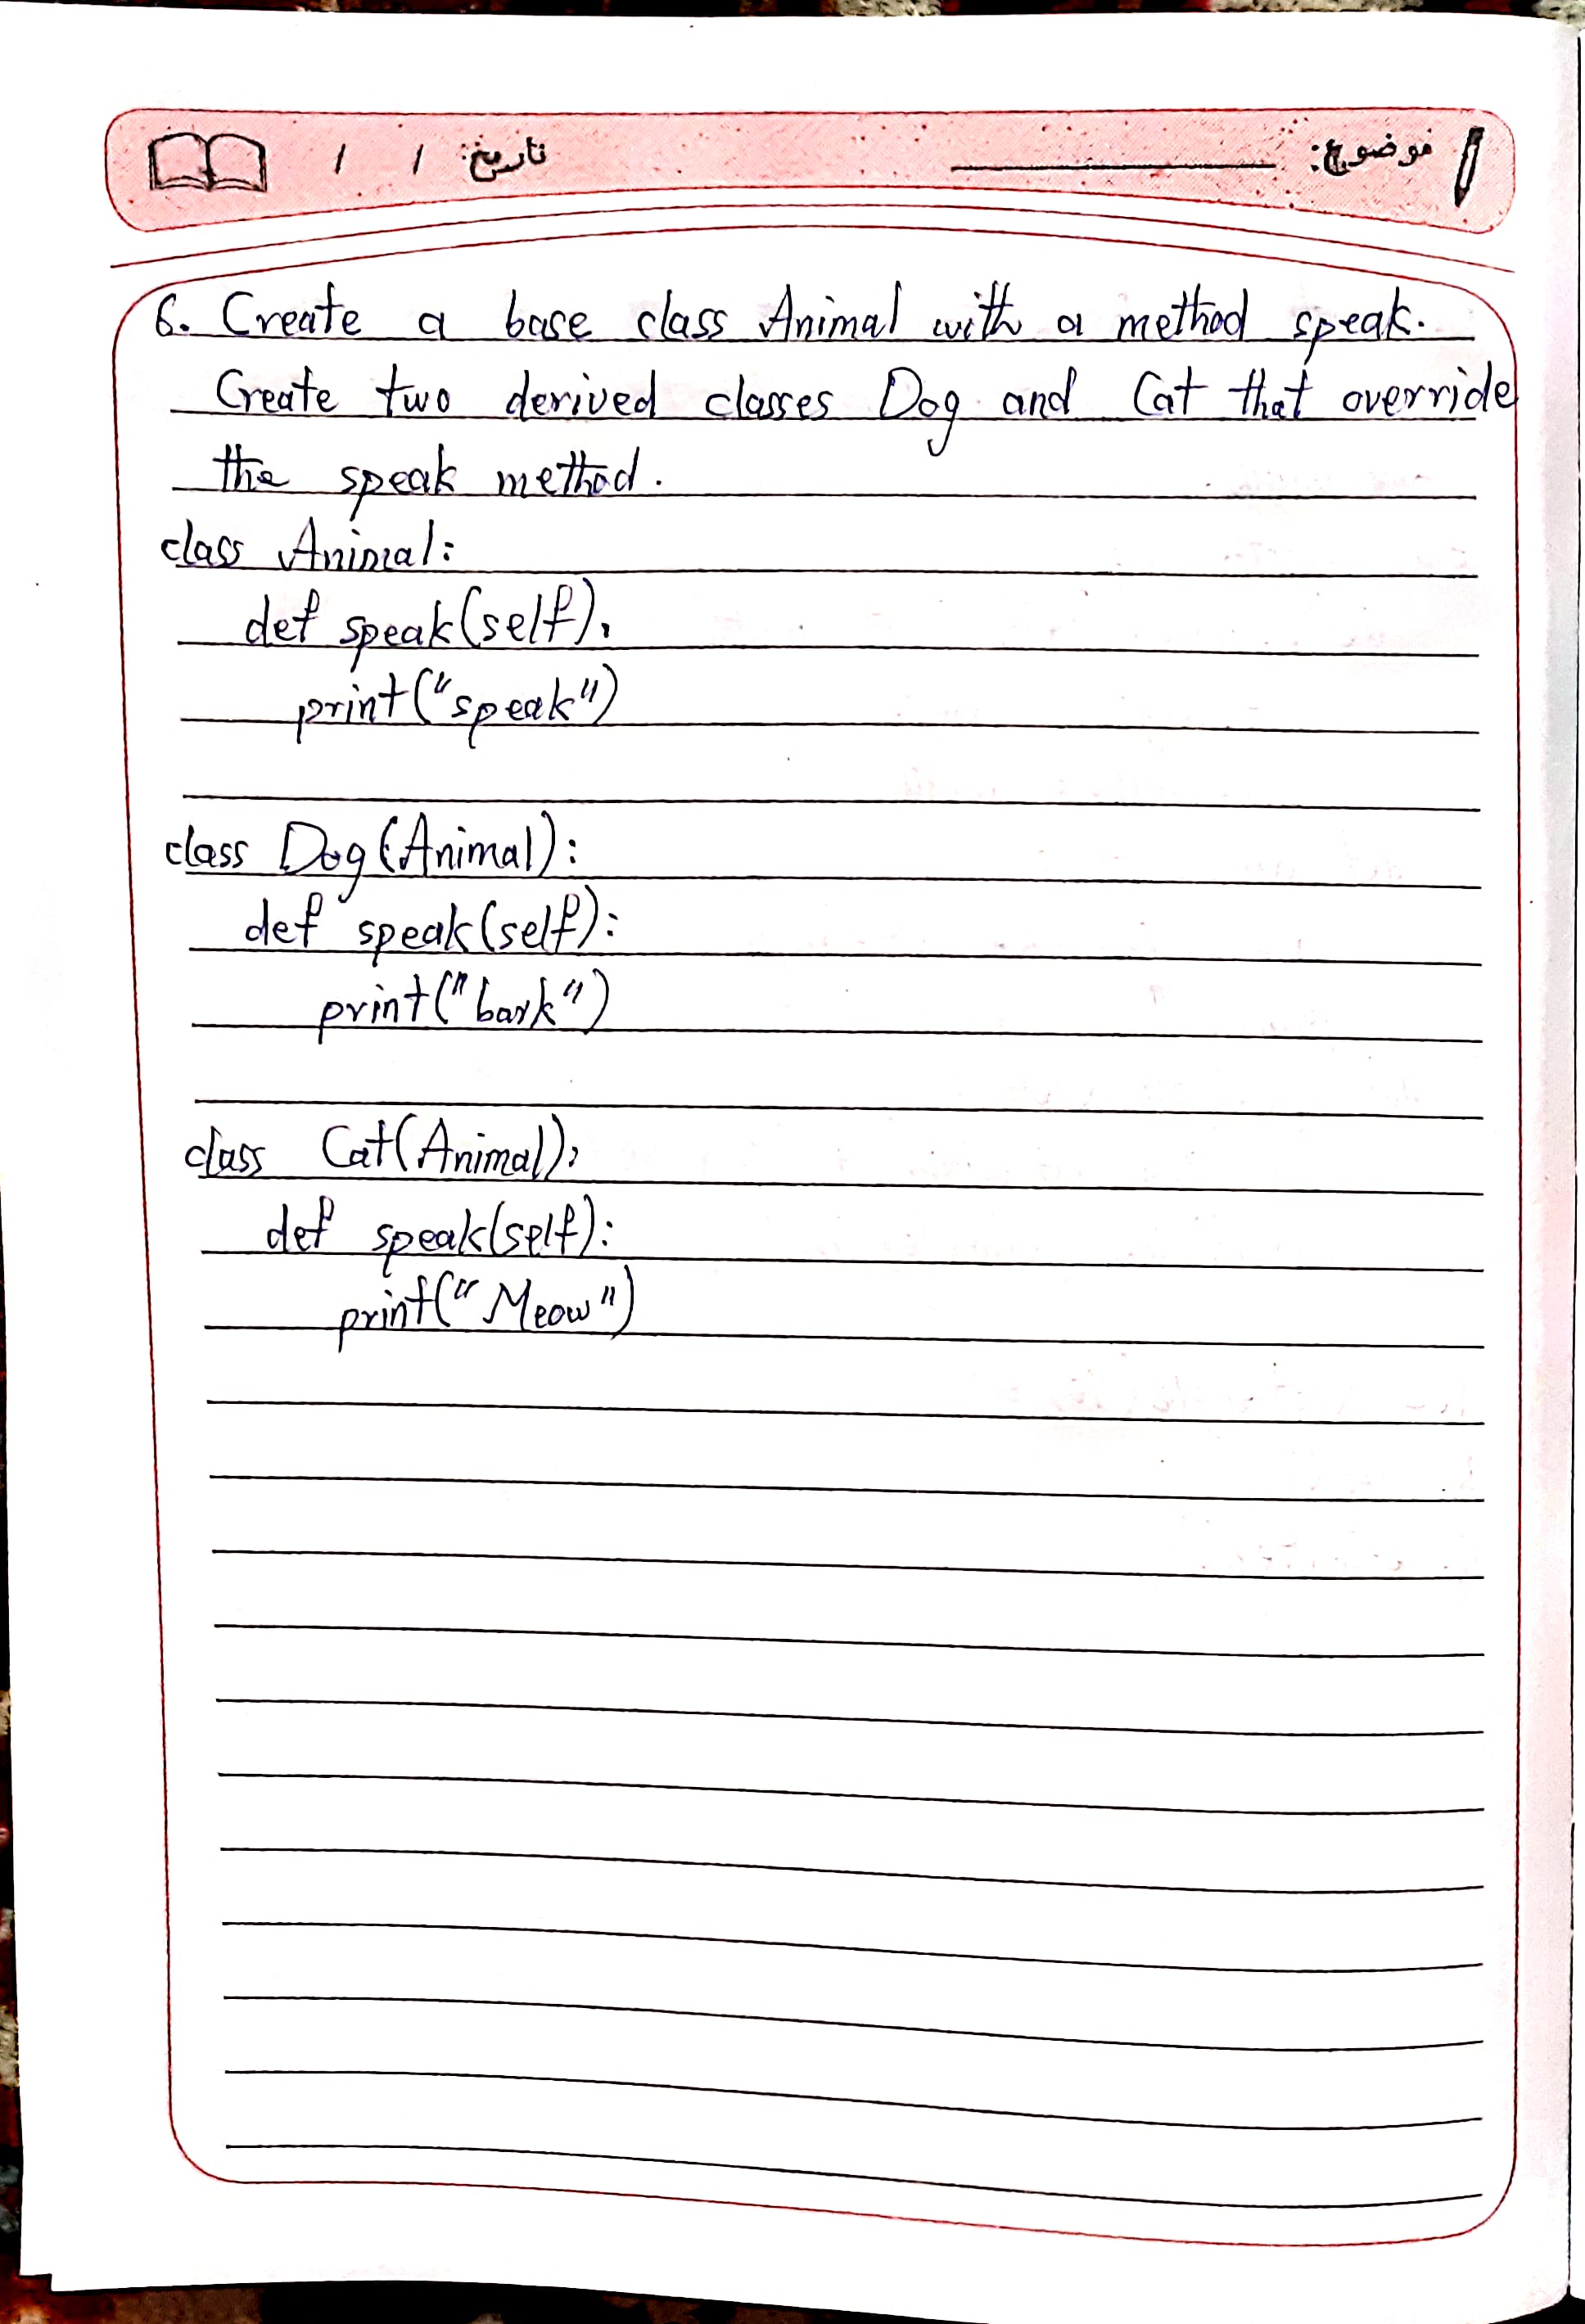 موضوع: تاریخ: / /
6. Create a base class Animal with a method speak.
Create two derived classes Dog and Cat that override
the speak method.
class Animal:
def speak(self):
print("speak")
class Dog(Animal):
def speak(self):
print("bark")
class Cat(Animal):
def speak(self):
print("Meow")